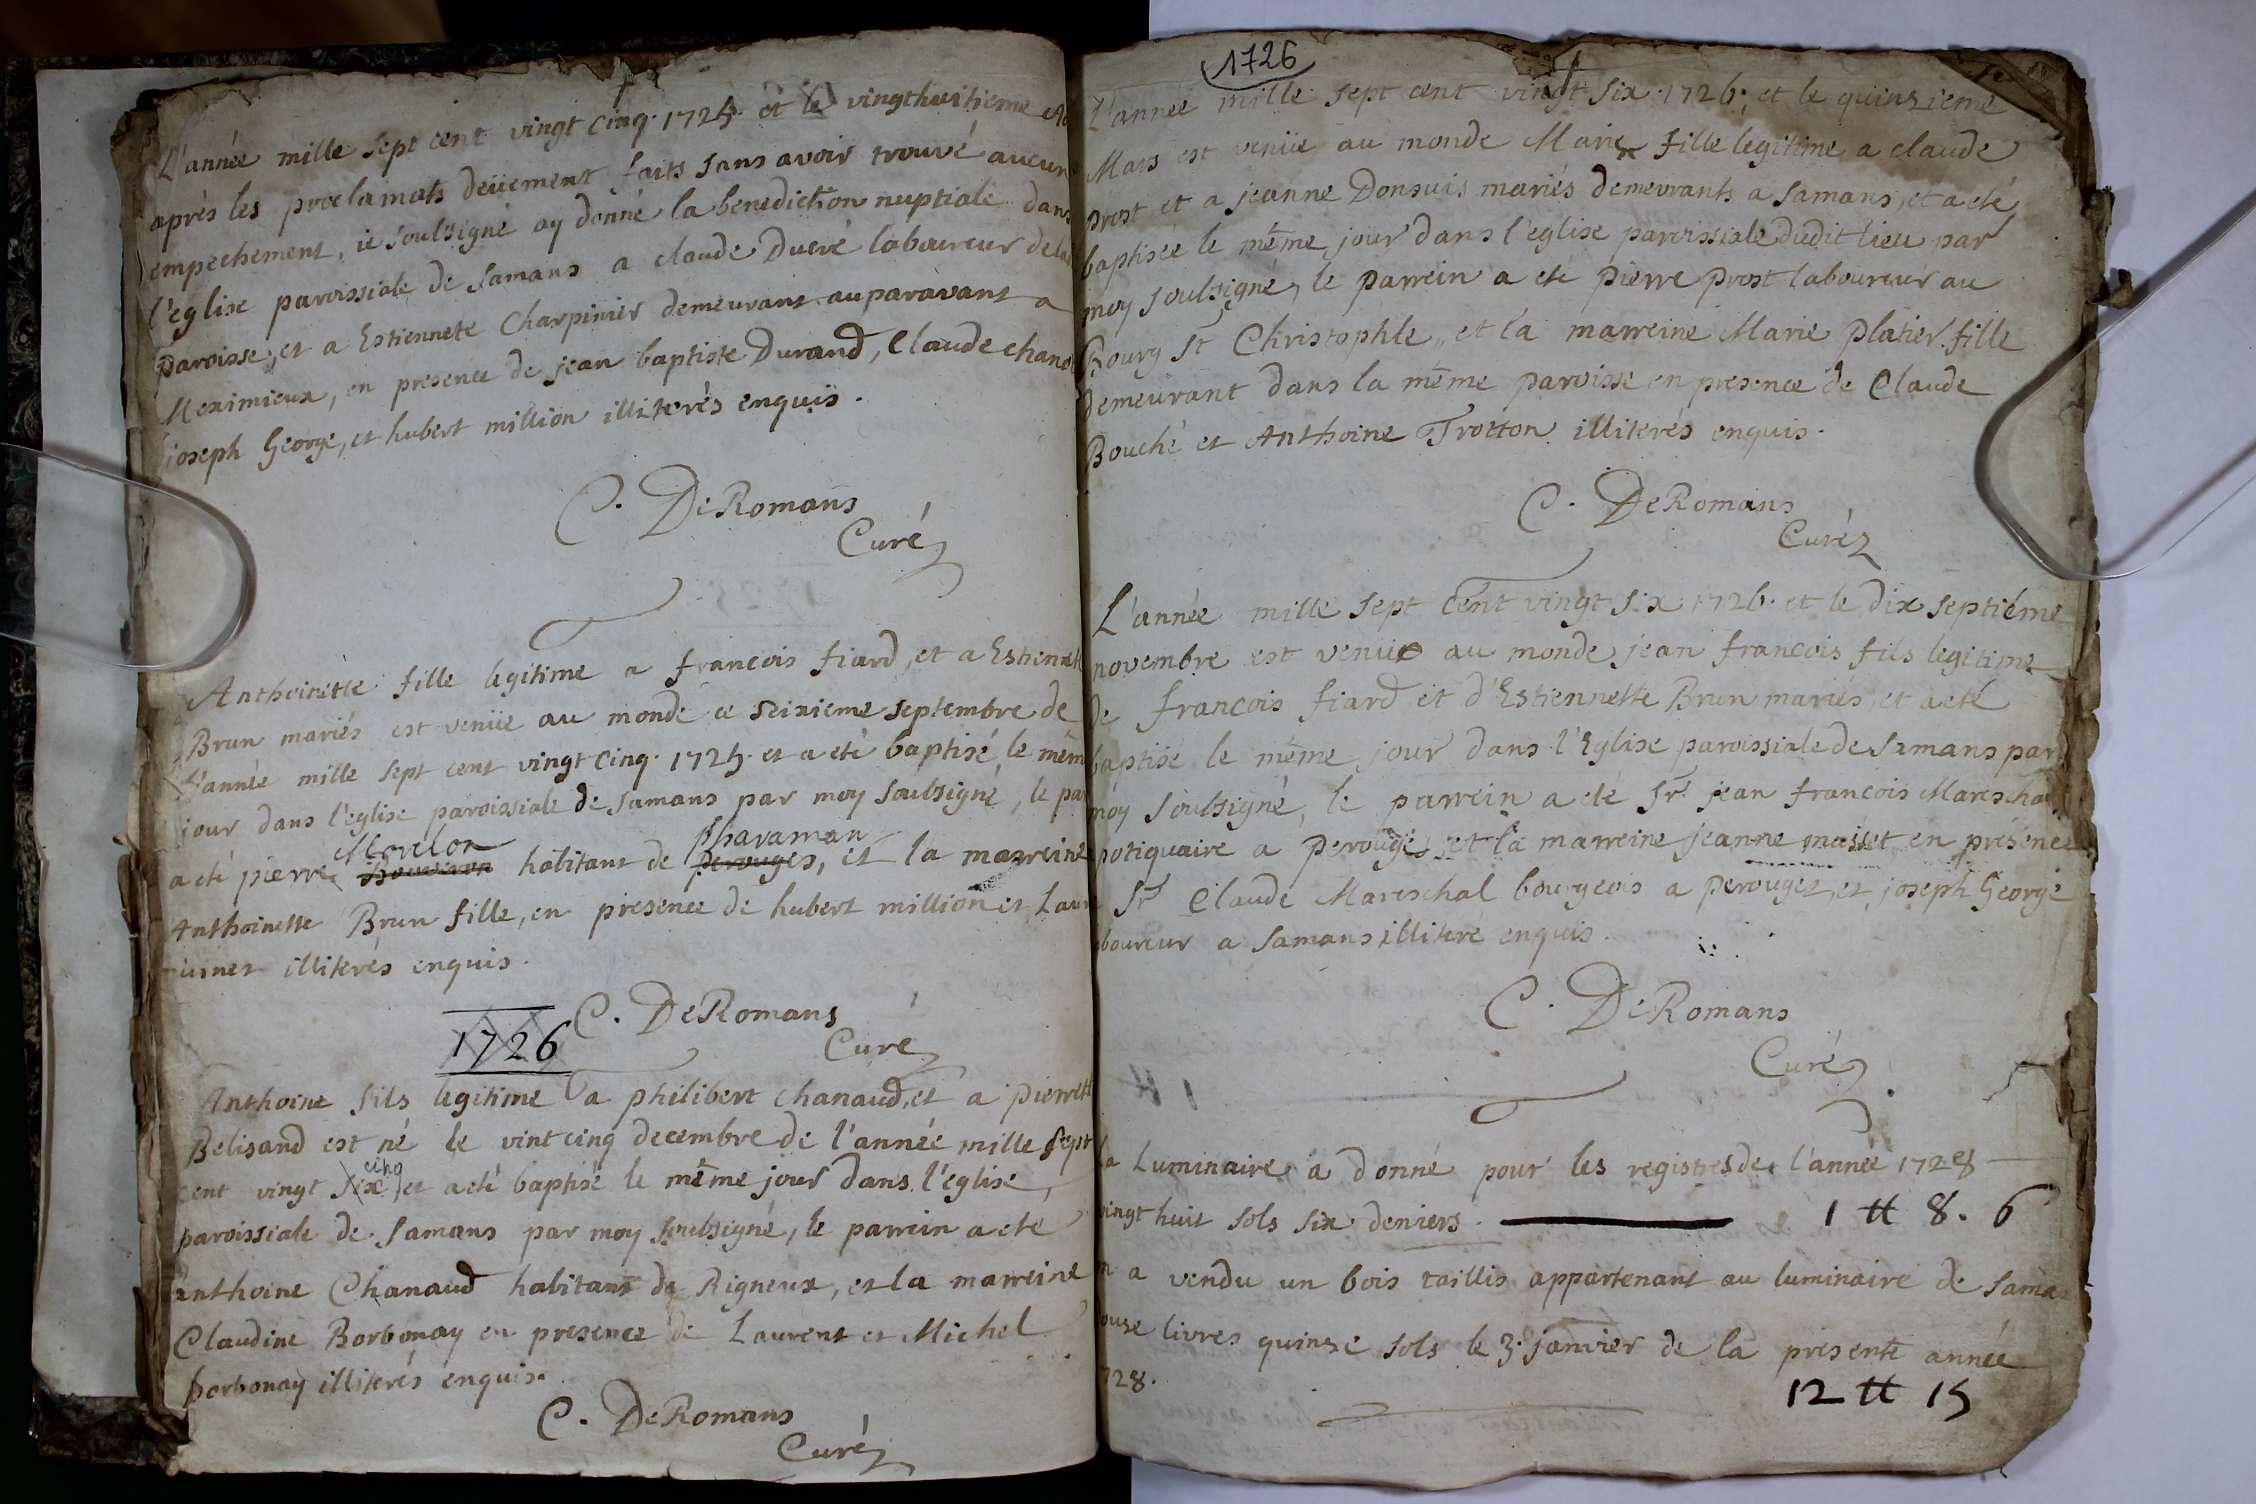 L'année mille sept cent vingt cinq. 1725. et le vingthuitieme
après les proclamats deüement faits sans avoir trouvé aucun
empechement, ie soubsigné ay donné la benediction nuptiale dans
l'eglise paroissiale de Samans a claude Ducré laboureur de la
paroisse, et a Estiennete Charpinier demeurant auparavant a
Meximieux, en presence de jean baptiste Durand, Claude chano
joseph George, et hubert million illiterés enquis.
C. DeRomans
Curé
Anthoinette fille legitime a francois fiard, et a Estiennette
Brun mariés est venüe au monde ce seixieme septembre de
l'année mille sept cent vingt cinq. 1725. et a eté baptisé le mem
jour dans l'eglise paroissiale de Samans par moy soubsigné, le par
Morelon pharaman
a eté pierre habitant de perouges, et la marreine
Anthoinette Brun fille, en presence de hubert million et Laur
illiterés enquis.
C. DeRomans
Curé
1726
Anthoine fils legitime a philibert chanaud, et a pierrette
Belisand est né le vint cinq decembre de l'année mille sept
cinq
cent vingt six, et a eté baptisé le même jour dans l'eglise
paroissiale de Samans par moy soubsigné, le parrein a eté
anthoine Chanaud habitant de Rigneux, et la marreine
Claudine Borbonay en presence de Laurent et Michel
borbonay illiterés enquis.
C. DeRomans
Curé
1726
L'année mille sept cent vingt six. 1726. et le quinzieme
Mars est venüe au monde Marie fille legitime a claude
prost et a jeanne Donsuis mariés demeurants a Samans, et a eté
baptisée le même jour dans l'eglise paroissiale dudit lieu par
moy soubsigné, le parrein a eté pierre prost laboureur au
Bourg St Christophle, et la marreine Marie platier fille
demeurant dans la même paroisse en presence de Claude
Bouché et Anthoine Trotton illiterés enquis.
C. DeRomans
Curé
L'année mille sept cent vingt six 1726. et le dix septiéme
novembre est venüe au monde jean francois fils legitime
de francois fiard et d'Estiennette Brun mariés, et a eté
baptisé le même jour dans l'Eglise paroissiale de Samans par
moy soubsigné, le parrein a eté Sr. jean francois Mareschal
potiquaire a perouges, et la marreine jeanne maset en présence
Sr Claude Mareschal bourgeois a perouges, et joseph George
boureur a Samans illiteré enquis.
C. DeRomans
Curé
La Luminaire a donné pour les registres de l'année 1728
vingt huit sols six deniers. 1 tt 8. 6
n a vendu un bois taillis appartenant au luminaire de Saman
ouse livres quinse sols le 3. janvier de la presente année
728.
12 tt 15